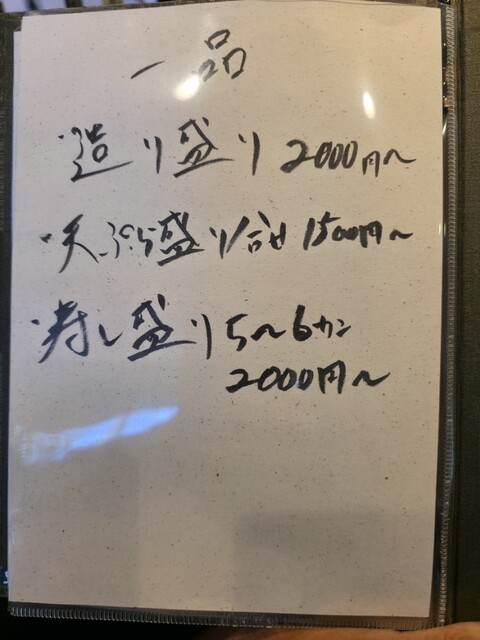 一品
・造り盛り 2000円〜
・天ぷら盛り合せ 1500円〜
・寿し盛り 5〜6カン
2000円〜